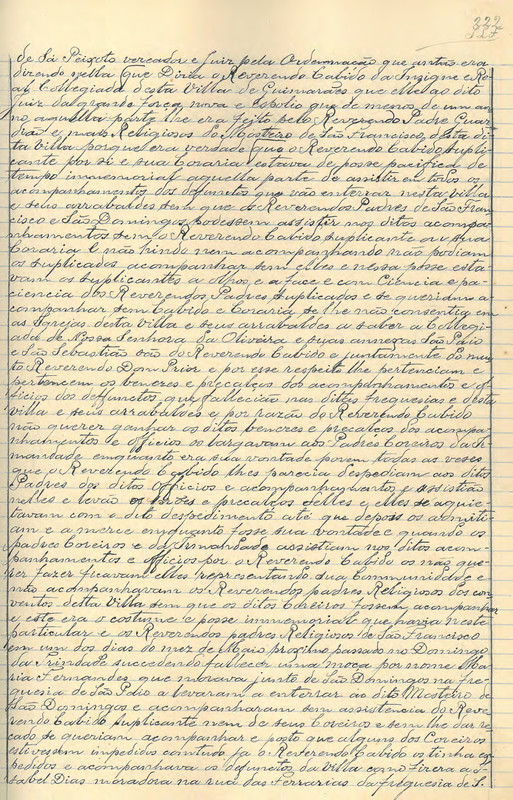 332
117
de Sá Peixoto vereador e Juiz pela Ordennação que juntos era
dizendo nella Que Dizia o Reverendo Cabido da Insigne e Re-
al Collegiada desta Villa de Guimarães que elle ao dito
Juiz da grande força nova e espolio que de menos de um an-
no aquella parte lhe era feito pelo Reverendo Padre Guar-
dião e mais Religiosos do Mosteiro de São Francisco desta di-
ta Villa porque era verdade que o Reverendo Cabido Suppli-
cante por si e sua Coraria estava de posse pacifica de
tempo immemorial aquella parte de assistir em todos os
acompanhamentos dos defunctos que vão enterrar nesta villa
e seus arrabaldes sem que os Reverendos Padres de São Fran-
cisco e São Domingos podessem assistir nos ditos acompa-
nhamentos sem o Reverendo Cabido supplicante ou sua
Coraria E não hindo nem acompanhando não podiam
os supplicados acompanhar sem elles e nessa posse esta-
vam os supplicantes a Anos e a face e com Ciencia e pa-
ciencia dos Reverendos Padres supplicados e se queriam a-
companhar sem Cabido e Coraria se lhe não consentia em
as Igrejas desta villa e seus arrabaldes a saber a Collegi-
ada de Nossa Senhora da Oliveira e suas annexas São Paio
e São Sebastião são do Reverendo Cabido e juntamente do mui-
to Reverendo Dom Prior e por esse respeito lhe pertenciam e
pertencem os beneces e precalços dos acompanhamentos e of-
ficios dos defunctos que falleciao nas ditas freguesias e desta
villa e seus arrabaldes e por razão do Reverendo Cabido
não querer ganhar os ditos beneces e precalços dos acompa-
nhamentos e officios os largavam aos Padres Coreiros da Ir-
mandade emquanto era sua vontade porem todas as veses
que o Reverendo Cabido lhes parecia despediam aos ditos
Padres dos ditos Officios e acompanhamentos e assistião
nelles e levão os lucros e precalços delles e elles se aquie-
tavam com o dito despedimento até que depois os admitti-
am e a merce emquanto fosse sua vontade e quando os
padres Coreiros e da Irmandade assistiam nos ditos acom-
panhamentos e Officios por o Reverendo Cabido os não que-
rer fazer ficavam elles representando sua Communidade e
não acompanhavam os Reverendos padres Religiosos dos con-
ventos desta Villa sem que os ditos Coreiros fossem acompanhar
e este era o costume e posse immemorial que havia neste
particular e os Reverendos padres Religiosos de São Francisco
em um dos dias do mez de Maio proximo passado no Domingo
da Trindade succedendo fallecer uma moça por nome Ma-
ria Fernandes que morava junto de São Domingos na fre-
guesia de São Paio a levaram a enterrar ao dito Mosteiro de
São Domingos e acompanharam sem assistencia do Reve-
rendo Cabido supplicante nem de seus Coreiros e sem lhe dar re-
cado se queriam acompanhar e posto que alguns dos Coreiros
estivessem impedidos comtudo já o Reverendo Cabido os tinha ex-
pedidos e acompanhava os defunctos da Villa como fizera a I-
sabel Dias moradora na rua das Ferrarias da freguesia de S.